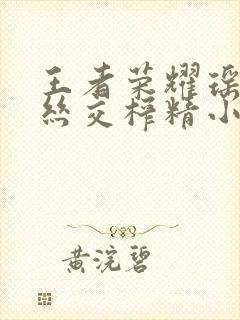 王者荣耀瑶
丝交榨精小
黄浣碧